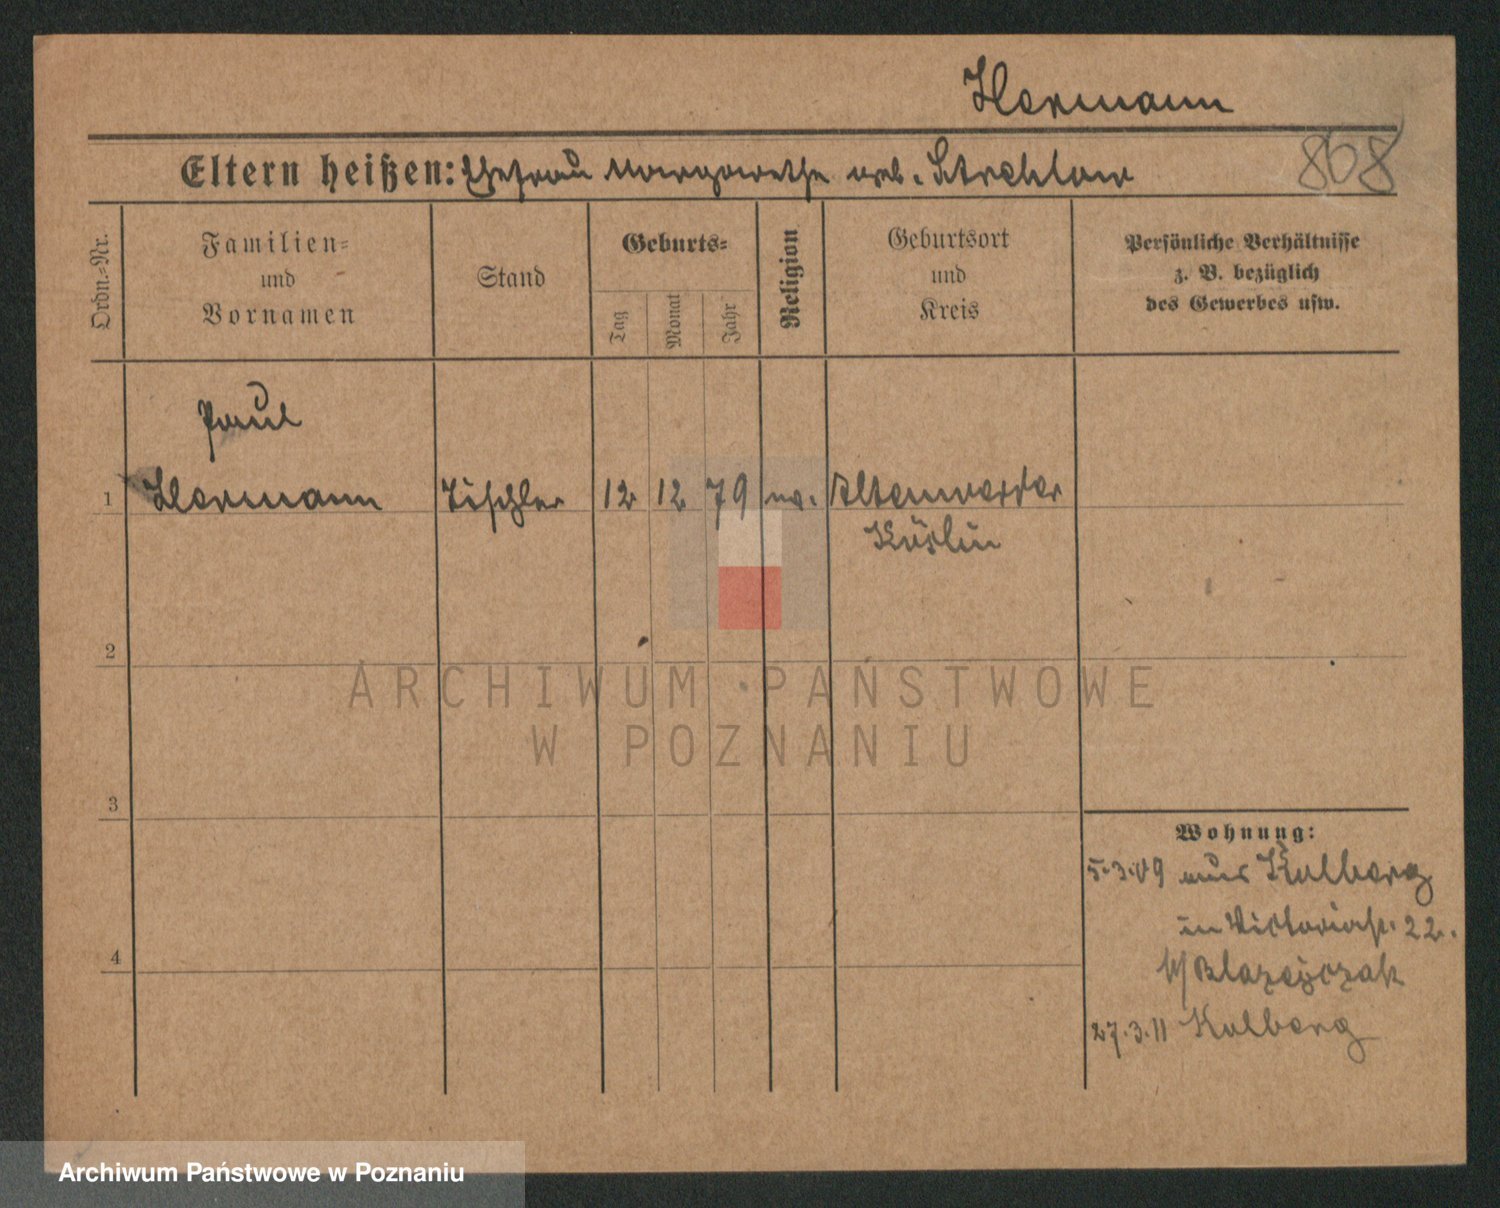 Hermann
Eltern heißen: Ehefrau Margarethe geb. Strehlow
868
Ordn.=Nr.
Familien=
und
Vornamen
Stand
Geburts=
Tag
Monat
Jahr
Religion
Geburtsort
und
Kreis
Persönliche Verhältnisse
z. B. bezüglich
des Gewerbes usw.
Paul
1 Hermann Tischler 12 12 79 ev. Altenwerder
Köslin
2
3
4
Wohnung:
5.3.09 aus Kolberg
in Victoriastr. 22.
b/ Blazejczak
27.3.11 Kolberg
ARCHIWUM PAŃSTWOWE
W POZNANIU
Archiwum Państwowe w Poznaniu